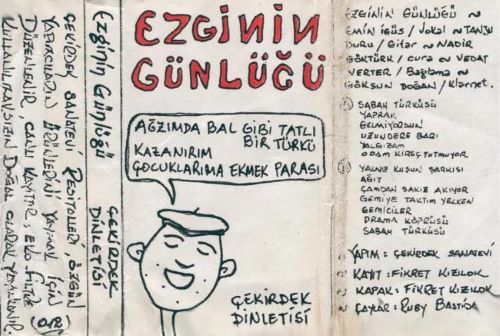 ÇEKİRDEK SANATEVİ RESİTALLERİ, ÖZGÜN
YAPIMCILARIN ÜRÜNLERİNİ YAYMAK İÇİN
DÜZENLENİR, CANLI KAYITTIR, EKO
KULLANILMAKSIZIN DOĞAL OLARAK YAYINLANIR
Ezginin Günlüğü
ÇEKİRDEK
DİNLETİSİ
EZGİNİN
GÜNLÜĞÜ
AĞZIMDA BAL GİBİ TATLI
BİR TÜRKÜ
KAZANIRIM
ÇOCUKLARIMA EKMEK PARASI
ÇEKİRDEK
DİNLETİSİ
EZGİNİN GÜNLÜĞÜ ~
EMİN İGÜS / Vokal ~ TANJU
DURU / Gitar ~ NADİR
GÖKTÜRK / cura ~ VEDAT
VERTER / Bağlama ~
GÖKSUN DOĞAN / Klarnet.
SABAH TÜRKÜSÜ
YAPRAK
GELMİYORSUN
UZUNDERE BARI
YALGIZAM
ODAM KİREÇ TUTMUYOR
YALNIZ KUŞUN ŞARKISI
AĞIT
ÇAMDAN SAKIZ AKIYOR
GEMİYE TAKTIM YELKEN
GEMİCİLER
DRAMA KÖPRÜSÜ
SABAH TÜRKÜSÜ
~ YAPIM: ÇEKİRDEK SANATEVİ
~ KAYIT: FİKRET KIZILOK
~ KAPAK: FİKRET KIZILOK
~ ÇAYLAR: RUBY BASTİDA